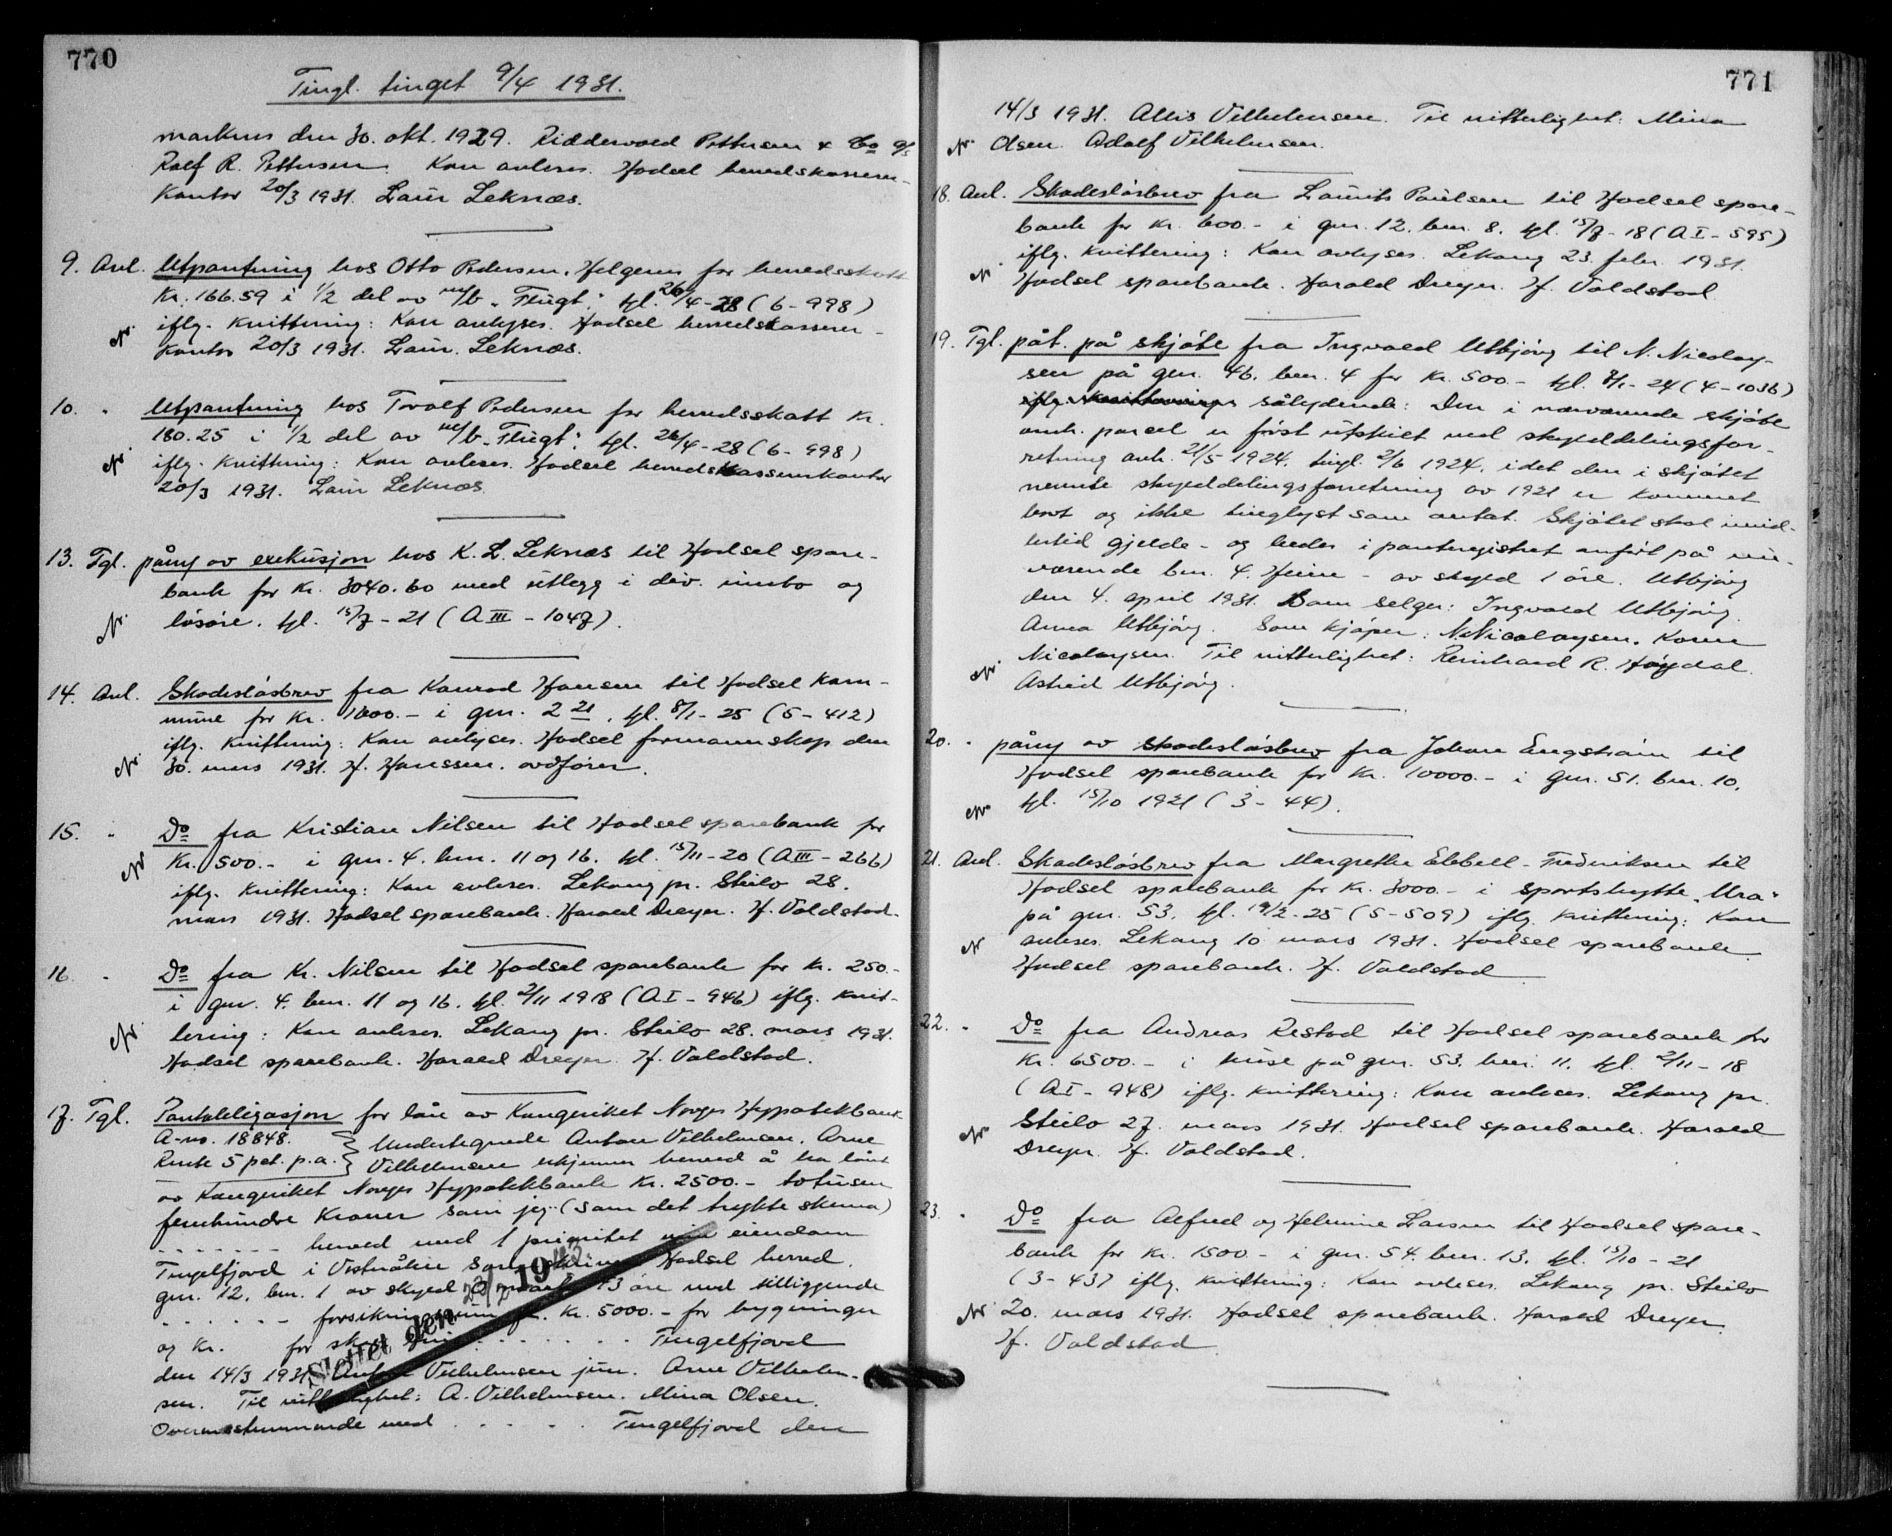 770
Tingl. tinget 9/4 1931.
markus den 30. okt. 1929. Riddervold Pettersen & Co A/s
Rolf R. Pettersen. Kan avleses. Hadsel herredskasserer-
kontor 20/3 1931. Laur Leknæs.
9. Avl. Utpantning hos Otto Pedersen, Helgenes for herredsskatt
Kr. 166.59 i 1/2 del av m/b "Flugt" tgl. 26/4-28 (6-998)
iflg. kvittering: Kan avlyses. Hadsel herredskasserer-
kontor 20/3 1931. Laur. Leknæs.
10. " Utpantning hos Torolf Pedersen for herredsskatt kr.
180.25 i 1/2 del av m/b "Flugt" tgl. 26/4-28 (6-998)
iflg. kvittering: Kan avleses. Hadsel herredskassererkontor
20/3 1931. Laur Leknæs.
13. Tgl. påny av exekusjon hos K. L. Leknæs til Hadsel spare-
bank for kr. 3040.60 med utlegg i div. innbo og
løsøre. tgl. 15/7-21 (A III-1047).
14. Avl. Skadesløsbrev fra Konrad Hansen til Hadsel kom-
mune for kr. 1000.- i gnr. 2 21. tgl. 8/1-25 (5-412)
iflg. kvittering: Kan avlyses. Hadsel formannskap den
30. mars 1931. H. Hanssen. ordfører.
15. " Do fra Kristian Nilsen til Hadsel sparebank for
Kr. 500.- i gnr. 4. bnr. 11 og 16. tgl. 15/11-20 (A III-266)
iflg. kvittering: Kan avleses. Lekang pr. Steilo 28.
mars 1931. Hadsel sparebank. Harald Dreyer. H. Voldstad.
16. " Do fra Kr. Nilsen til Hadsel sparebank for kr. 250.-
i gnr. 4. bnr. 11 og 16. tgl. 2/11 1918 (A I-946) iflg. kvit-
tering: Kan avleses. Lekang pr. Steilo 28. mars 1931.
Hadsel sparebank. Harald Dreyer. H. Voldstad.
17. Tgl. Pantobligasjon for lån av Kongeriket Norges Hypotekbank
A-no. 18848. Undertegnede Anton Vilhelmsen, Arne
Rente 5 pct. p.a. Vilhelmsen erkjenner herved å ha lånt
av Kongeriket Norges Hypotekbank Kr. 2500.- totusen
femhundre kroner som jeg (som det trykte skema)
. . . . . . . herved med 1 prioritet min eiendom
Tingelfjord i Hadsel herred.
gnr. 12. bnr. 1 av skyld mark 13 øre med tilliggende
. . . . . . forsikringssum kr. 5000.- for bygninger
og kr. for skog . . . . . . Tingelfjord
den 14/3 1931 Anton Vilhelmsen jun. Arne Vilhelm-
sen. Til vitterlighet: A. Vilhelmsen. Mina Olsen.
Overensstemmende med . . . . . Tingelfjord den
Slettet den 23/2 1943
771
14/3 1931. Vilhelmsen. Til vitterlighet: Mina
Olsen. Adolf Vilhelmsen.
18. Avl. Skadesløsbrev fra Laurits Paulsen til Hadsel spare-
bank for kr. 600.- i gnr. 12. bnr. 8. tgl. 15/7-18 (A I-595)
iflg. kvittering: Kan avlyses. Lekang 23. febr. 1931.
Hadsel sparebank. Harald Dreyer. H. Voldstad.
19. Tgl. påt. på skjøte fra Ingvald Utbjörg til N. Nicolay-
sen på gnr. 46. bnr. 4 for kr. 500.- tgl. 8/1-24 (4-1036)
iflg. kvittering sålydende: Den i nærværende skjøte
omh. parcel er først utskilt ved skylddelingsfor-
retning avh. 21/5 1924, tingl. 2/6 1924, idet den i skjøtet
nevnte skylddelingsforretning av 1921 er kommet
bort og ikke tinglyst som antat. Skjøtet skal imid-
lertid gjelde - og bedes i panteregistret anført på nu-
værende bnr. 4. Heim - av skyld 1 øre. Utbjörg
den 4. april 1931. Som selger: Ingvald Utbjörg.
Anna Utbjörg. Som kjøper: N. Nicolaysen. Karen
Nicolaysen. Til vitterlighet: Reinhard R. Høydal.
Astrid Utbjörg.
20. " påny av skadesløsbrev fra Johan Engström til
Hadsel sparebank for kr. 10000.- i gnr. 51. bnr. 10.
tgl. 15/10 1921 (3-44).
21. Avl. Skadesløsbrev fra Margrethe Ebbell-Frederiksen til
Hadsel sparebank for kr. 3000.- i sportshytte "Ura"
på gnr. 53. tgl. 19/2-25 (5-509) iflg. kvittering: Kan
avleses. Lekang 10 mars 1931. Hadsel sparebank.
Hadsel sparebank. H. Voldstad
22. " Do fra Andreas Restad til Hadsel sparebank for
Kr. 6500.- i huse på gnr. 53. bnr. 11. tgl. 2/11-18
(A I-948) iflg. kvittering: Kan avleses. Lekang pr.
Steilo 27. mars 1931. Hadsel sparebank. Harald
Dreyer. H. Voldstad.
23. " Do fra Alfred og Helmine Larsen til Hadsel spare-
bank for kr. 1500.- i gnr. 54. bnr. 13. tgl. 15/10-21
(3-43) iflg. kvittering: Kan avleses. Lekang pr. Steilo
20. mars 1931. Hadsel sparebank. Harald Dreyer.
H. Voldstad